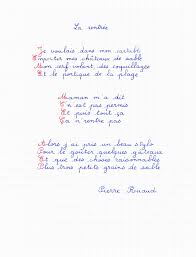 La rentrée
Je voulais dans mon cartable
Emporter mes châteaux de sable
Mon cerf-volant, des coquillages
Et le portique de la plage
Maman m'a dit
C'n'est pas permis
Et puis tout ça
Ça n'rentre pas
Alors j'ai pris un beau stylo
Pour le goûter quelques gâteaux
Et que des choses raisonnables
Plus trois petits grains de sable
Pierre Ruaud